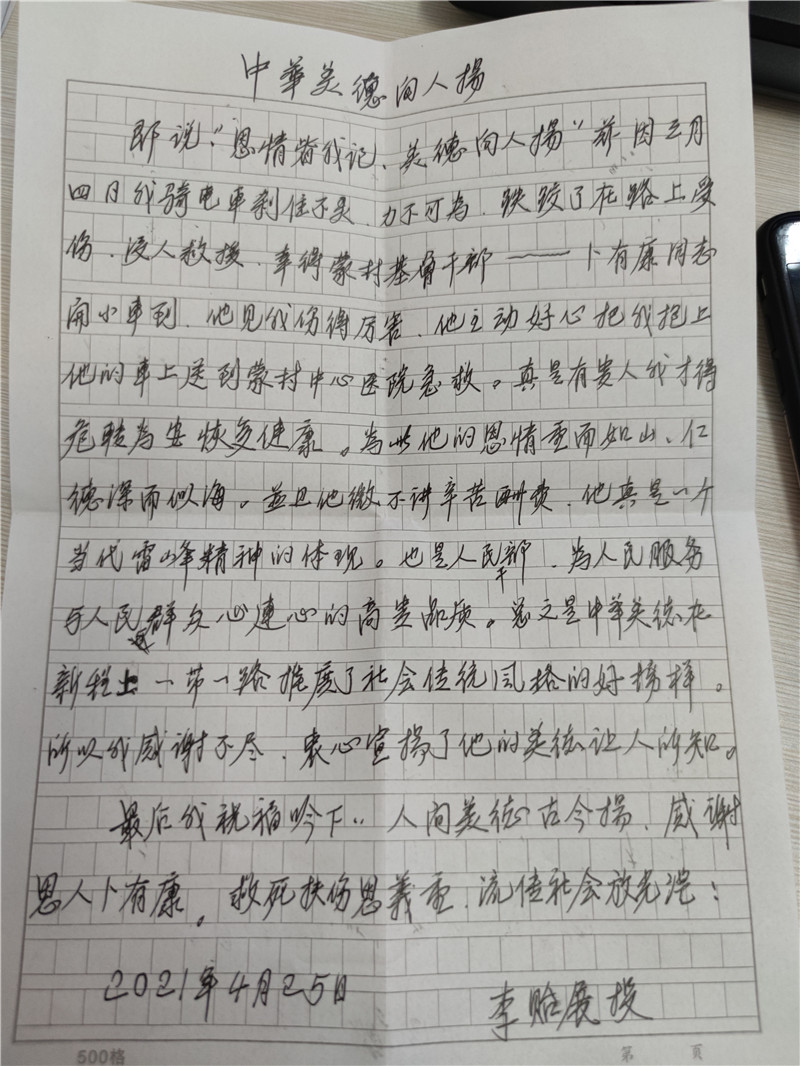 中華美德向人揚
即说："恩情皆我记、美德向人揚"兹因三月
四日我骑电車刹住不灵、力不可為、跌跤了在路上受
伤、没人救援、幸得蒙村基骨干部——卜有康同志
開小車到、他见我伤得厉害、他主动好心把我抱上
他的車上送到蒙村中心医院急救。真是有贵人我才得
危转為安恢复健康。為此他的恩情重而如山、仁
德深而似海。並且他繳不讲辛苦酬费、他真是一个
当代雷峰精神的体现。也是人民干部、為人民服务
与人民群众心連心的高贵品质。总之是中華美德在
新程上一带一路推廣了社会传统风格的好榜样。
所以我感谢不尽、衷心宣揚了他的美德让人所知。
最后我祝福吟下：人间美德古今揚、感谢
恩人卜有康。救死扶伤恩義重、流传社会放光芒：
2021年4月25日
李贻展投
500格
第 页